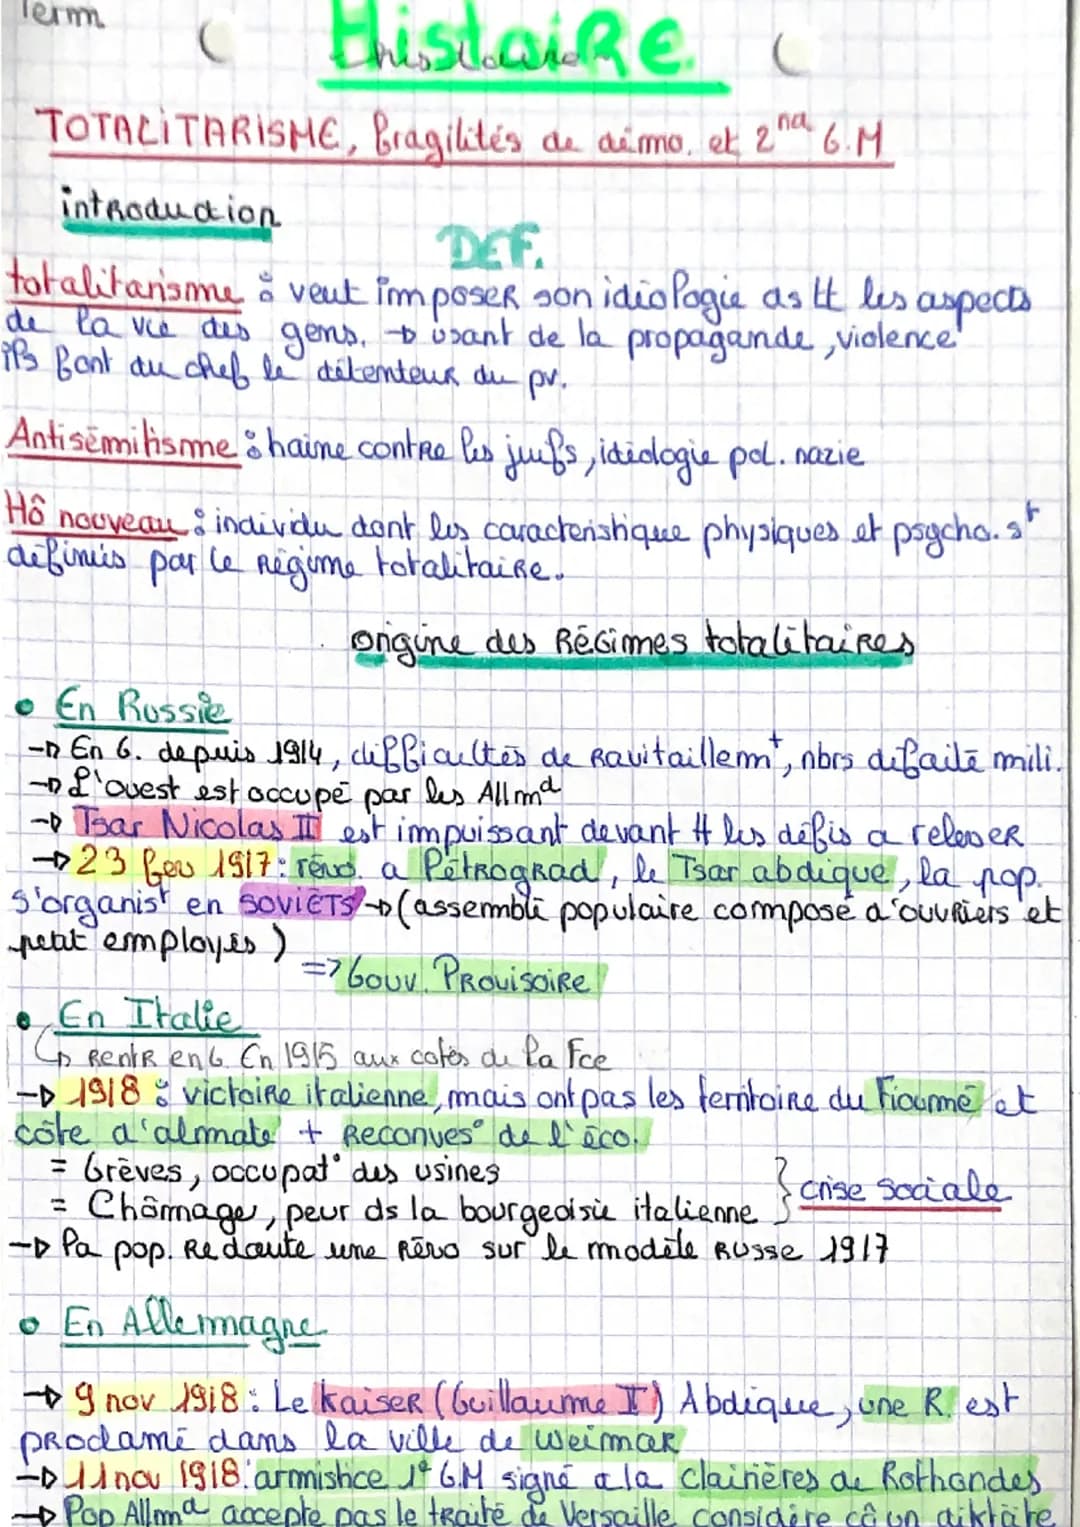 Term
HistoiRe
TOTALiTARiSME, fragilités de démo. et 2nd G.M
intRoduction
DEF.
totalitarisme : veut imposeR son idéologie ds tt les aspects
de la vie des gens. → usant de la propagande, violence
ils font du chef le détenteur du pv.
Antisémitisme : haine contRe les juifs, idéologie pol. nazie
Hô nouveau : individu dont les caractéristique physiques et psycho. st
définies par le Régime totalitaiRe.
origine des RéGimes totalitaiRes
• En Russie
→ En G. depuis 1914, difficultés de Ravitaillemt, nbrs défaite mili.
→ L'ouest est occupé par les Allmd
→ Tsar Nicolas II est impuissant devant tt les défis a releveR
→ 23 fev 1917 : révo. a PétRogRad, le Tsar abdique, la pop.
s'organist en SOVIETS → (assemblé populaire composé d'ouvRiers et
petit employés)
=> Gouv. PRovisoiRe
• En Italie
↳ RentR en G. En 1915 aux cotés de la Fce
→ 1918 : victoiRe italienne, mais ont pas les territoire du Fioumé et
côte d'almate + Reconves° de l'éco.
= Grèves, occupat° des usines
= Chômage, peur ds la bourgeoisie italienne } crise sociale
→ la pop. Redoute une Révo sur le modèle Russe 1917
• En Allemagne
→ 9 nov 1918 : Le KaiseR (Guillaume II) Abdique, une R. est
pRoclamé dans la ville de WeimaR
→ 11 nov 1918 : armistice 1e G.M signé a la clairières de Rothondes
→ Pop Allmd accepte pas le tRaité de Versaille considère cô un diktäte